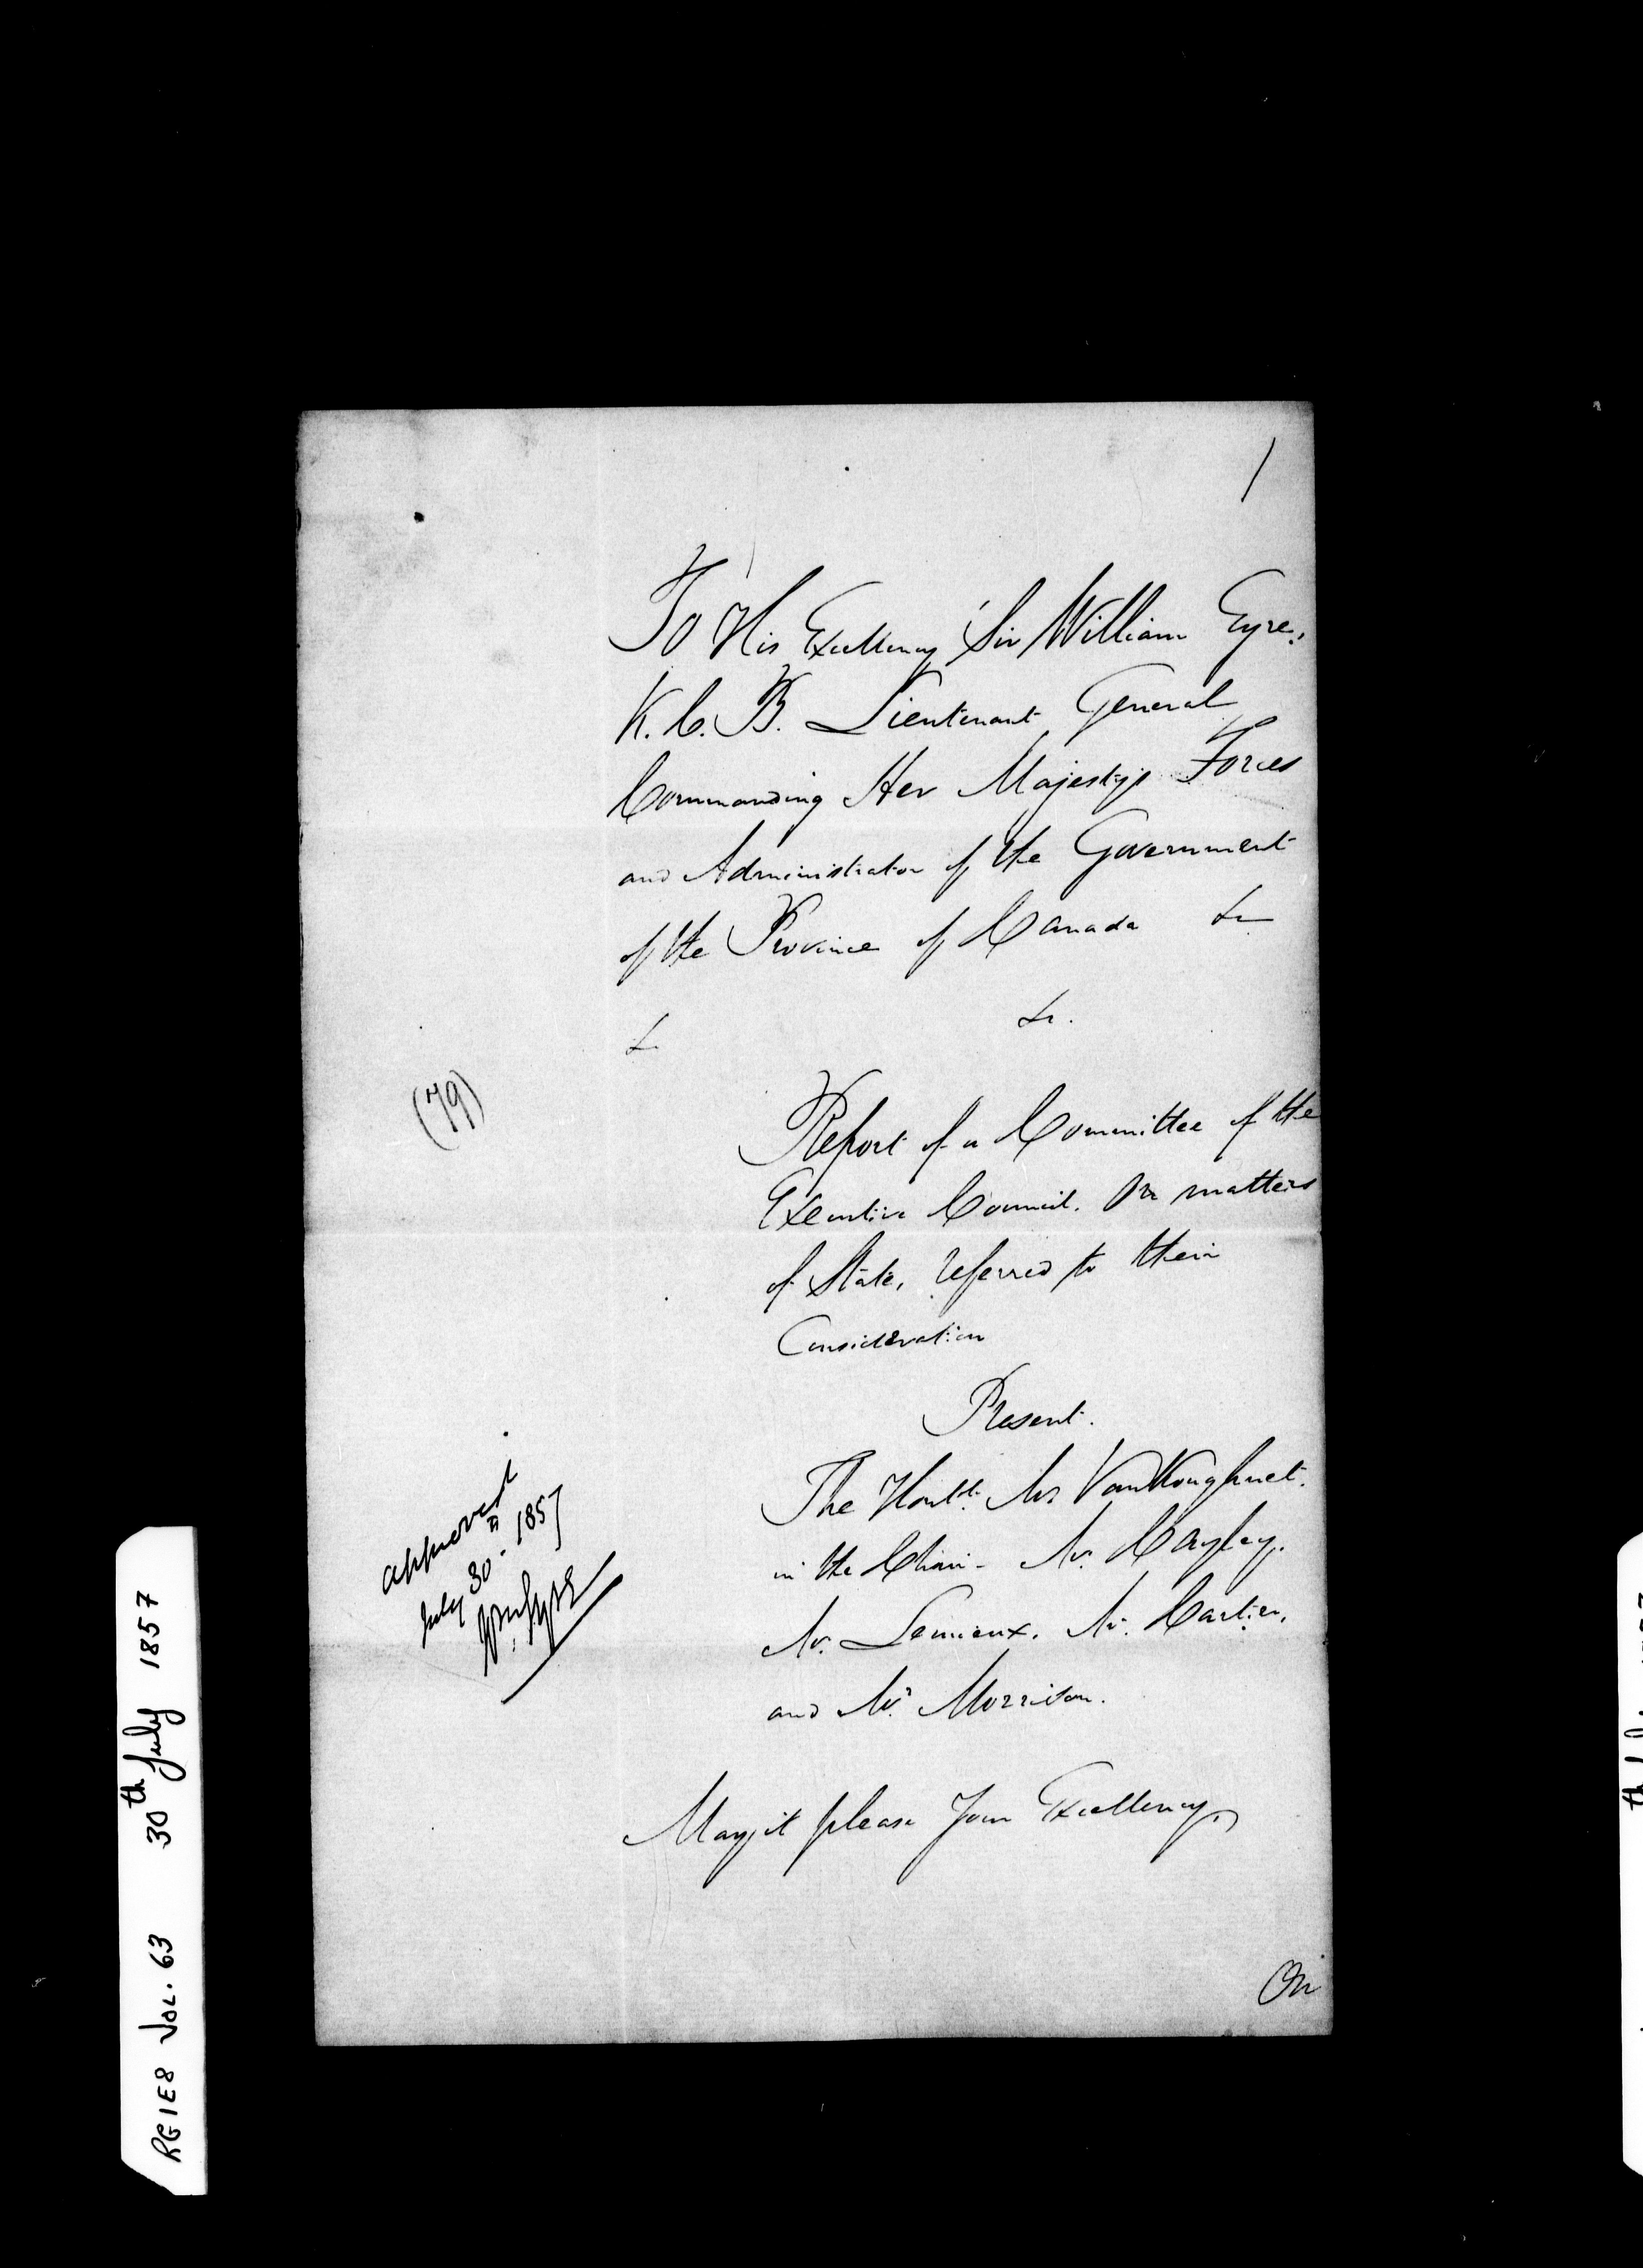 1
To His Excellency Sir William Eyre,
K. C. B. Lieutenant General
Commanding Her Majesty's Forces
and Administrator of the Government
of the Province of Canada &c
& &c.
(79)
Report of a Committee of the
Executive Council. On matters
of State, referred to their
Consideration
Present.
The Honble. Mr VanKoughnet.
in the Chair - Mr. Cayley.
Mr. Lemieux. Mr. Cartier,
and Mr. Morrison.
approved
July 30th 1857
Wm Eyre
May it please Your Excellency,
On
RG 1 E8 VOL. 63 30th July 1857